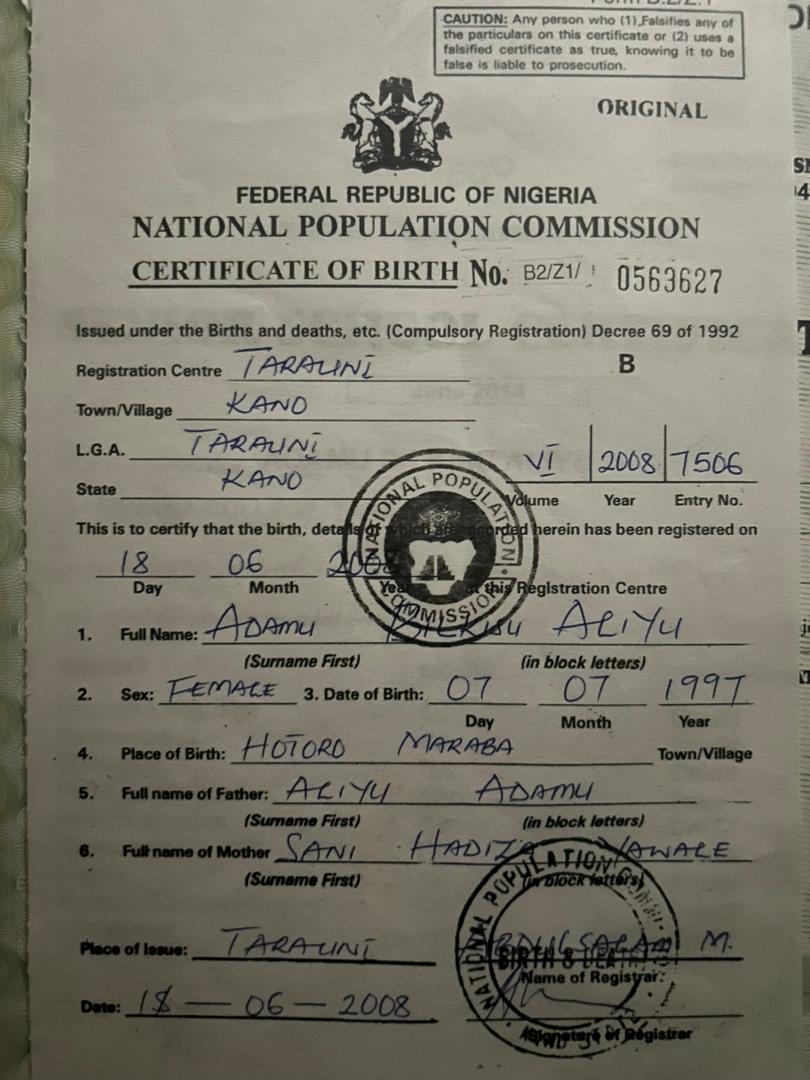 CAUTION: Any person who (1) Falsifies any of
the particulars on this certificate or (2) uses a
falsified certificate as true, knowing it to be
false is liable to prosecution.
ORIGINAL
FEDERAL REPUBLIC OF NIGERIA
NATIONAL POPULATION COMMISSION
CERTIFICATE OF BIRTH No. B2/Z1/ 0563627
Issued under the Births and deaths, etc. (Compulsory Registration) Decree 69 of 1992
Registration Centre TARAUNI B
Town/Village KANO
L.G.A. TARAUNI VI 2008 7506
State KANO Volume Year Entry No.
This is to certify that the birth, details of which are recorded herein has been registered on
18 06 2008
Day Month Year at this Registration Centre
1. Full Name: ADAMU BILKISU ALIYU
(Surname First) (in block letters)
2. Sex: FEMALE 3. Date of Birth: 07 07 1997
Day Month Year
4. Place of Birth: HOTORO MARABA Town/Village
5. Full name of Father: ALIYU ADAMU
(Surname First) (in block letters)
6. Full name of Mother SANI HADIZA YAWALE
(Surname First) (in block letters)
Place of Issue: TARAUNI ABDULSALAM M.
Name of Registrar
Date: 18 — 06 — 2008
Signature of Registrar
NATIONAL POPULATION COMMISSION
NATIONAL POPULATION
BIRTH & DEATH